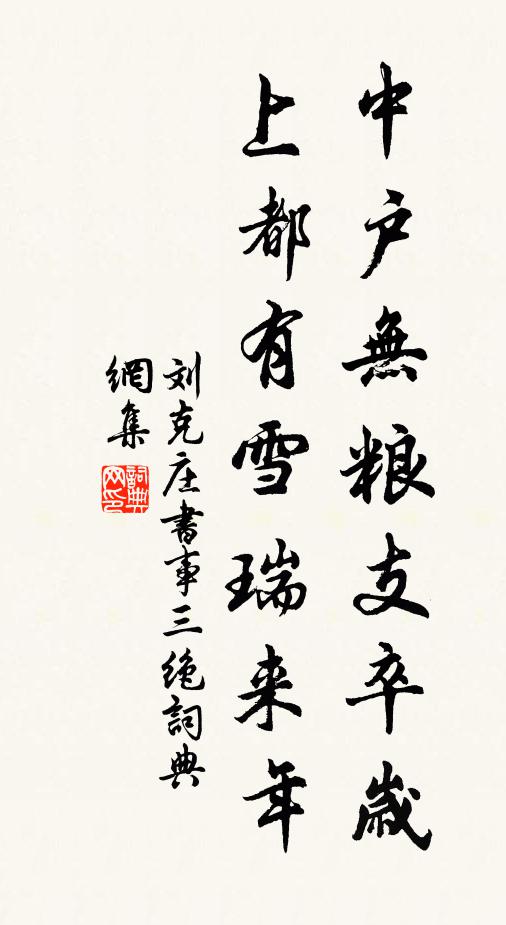 中户無粮支卒歲
上都有雪瑞来年
刘克庄書事三绝詞典
網集
詞典
网印